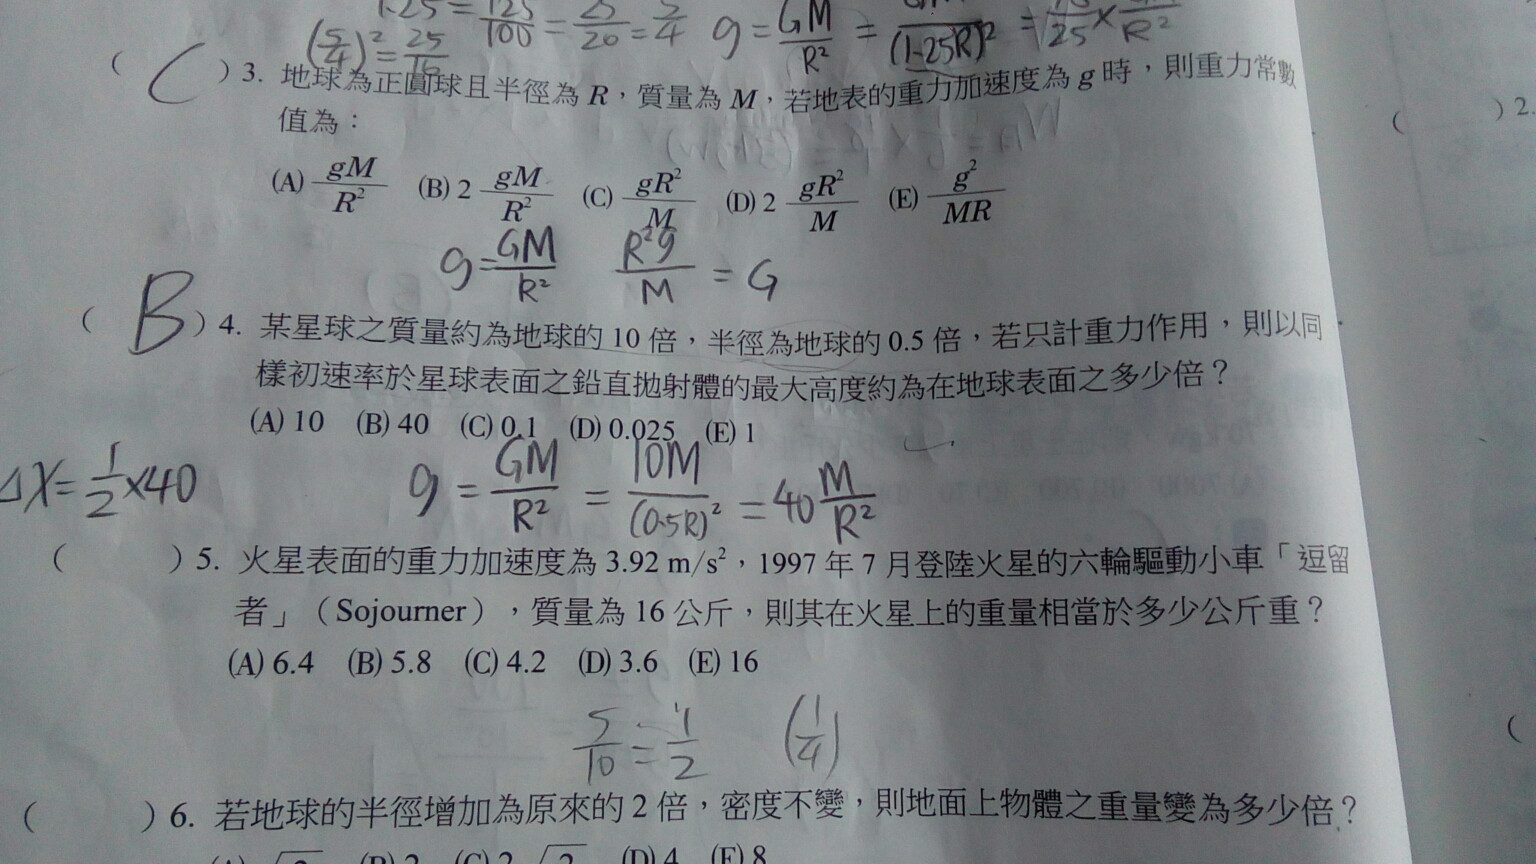 1.25 = 125/100 = 25/20 = 5/4
(5/4)² = 25/16
g = GM/R² = /(1.25R)² =
( C ) 3. 地球為正圓球且半徑為 R，質量為 M，若地表的重力加速度為 g 時，則重力常數
值為：
(A) gM/R² (B) 2 gM/R² (C) gR²/M (D) 2 gR²/M (E) g²/MR
g = GM/R² R²g/M = G
( B ) 4. 某星球之質量約為地球的 10 倍，半徑為地球的 0.5 倍，若只計重力作用，則以同
樣初速率於星球表面之鉛直拋射體的最大高度約為在地球表面之多少倍？
(A) 10 (B) 40 (C) 0.1 (D) 0.025 (E) 1
ΔX = 1/2 × 40
g = GM/R² = 10M/(0.5R)² = 40 M/R²
( ) 5. 火星表面的重力加速度為 3.92 m/s²，1997 年 7 月登陸火星的六輪驅動小車「逗留
者」（Sojourner），質量為 16 公斤，則其在火星上的重量相當於多少公斤重？
(A) 6.4 (B) 5.8 (C) 4.2 (D) 3.6 (E) 16
5/10 = 1/2 (1/4)
( ) 6. 若地球的半徑增加為原來的 2 倍，密度不變，則地面上物體之重量變為多少倍？
(B) 2 (C) 2 (D) 4 (E) 8
( ) 2.
(